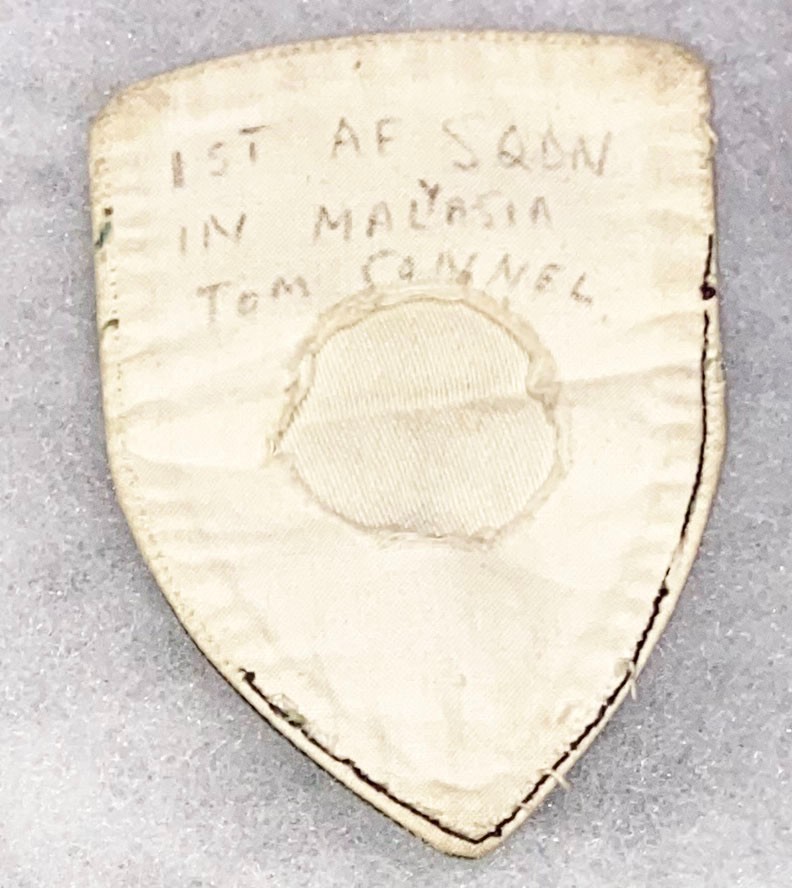 1ST AF SQDN
IN MALYASIA
TOM